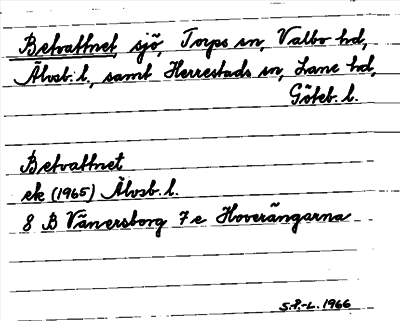 Betvattnet, sjö, Torps sn, Valbo hd,
Älvsb. l., samt Herrestads sn, Lane hd,
Göteb. l.
Betvattnet
ek (1965) Älvsb. l.
8 B Vänersborg 7e Hoverängarna
S.P.-L. 1966